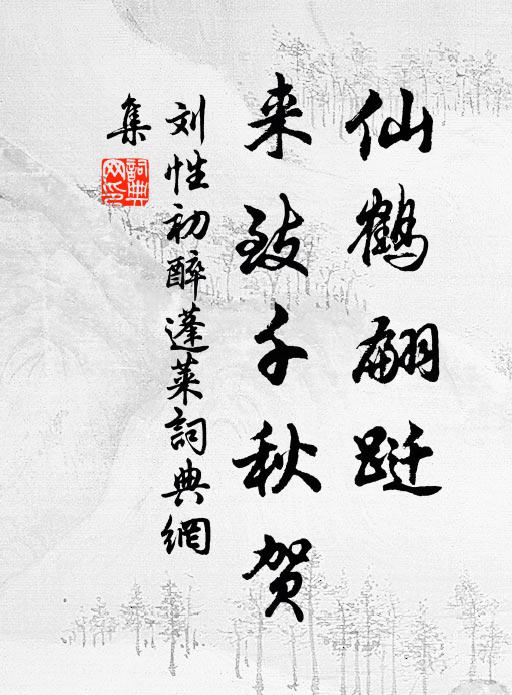 仙鹤翩跹
来致千秋贺
刘性初醉蓬莱詞典網
集
詞典
网印